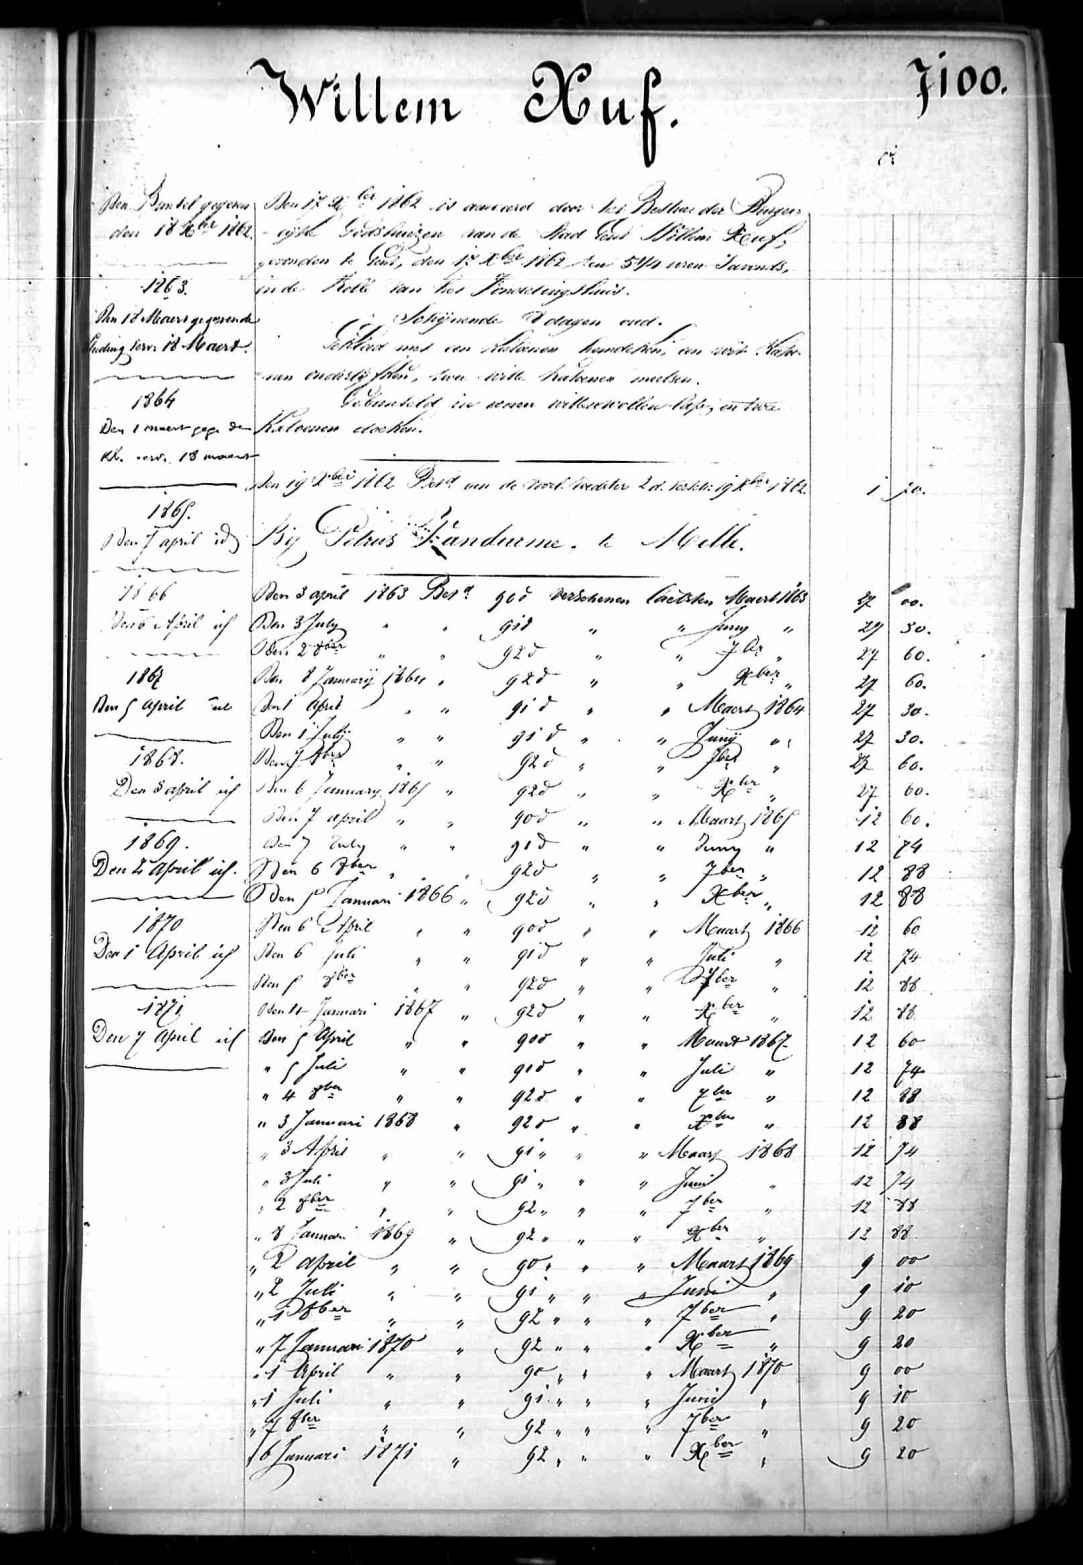 Willem Xuf.
7100.
Den Bundel gegeven
den 18 Xber 1862.
1863.
Den 18 Maert gegevende
kleeding voor 18 Maert.
1864
Den 1 maert geg. den
kl. voor. 18 maart
1865.
Den 7 april id
1866
Den 6 April id
1867
Den 5 April id
1868.
Den 3 april id
1869.
Den 2 April id.
1870
Den 1 April id
1871
Den 7 April id
Den 17 Xber 1862 is aanvaard door het Bestuer der Burger-
-lijke Godshuizen van de Stad Gend Willem Xuf,
gevonden te Gend, den 17 Xber 1862 ten 5 1/4 uren 's avonds,
in de Rolle van het Vondelingshuis.
Schijnende 8 dagen oud.
Gekleed met een katoenen hemdeken, een wit
van onderlyfken, twee witte katoenen mutsen.
Gebunseld in eenen witten wollen lap, en twee
Katoenen doeken.
Den 19 Xber 1862 Betd aan de 2 d. 19 Xber 1862 1 70.
Bij Petrus Vandurme. te Melle.
Den 3 april 1863 Betd 90 d verschenen laetsten Maert 1863 27 00.
Den 3 July " " 91 d " " Juny " 27 30.
Den 2 8ber " " 92 d " " 7br " 27 60.
Den 8 Januarij 1864 " 92 d " " Xber " 27 60.
Den 1 April " " 91 d " " Maert 1864 27 30.
Den 1 July " " 91 d " " Junij " 27 30.
Den 7 8ber " " 92 d " " 7ber " 27 60.
Den 6 January 1865 " 92 d " " Xber " 27 60.
Den 7 april " " 90 d " " Maart 1865 12 60.
Den 7 July " " 91 d " " Juny " 12 74
Den 6 8ber " " 92 d " " 7ber " 12 88
Den 5 Januari 1866 " 92 d " " Xber " 12 88
Den 6 April " " 90 d " " Maart 1866 12 60
Den 6 Juli " " 91 d " " Juli " 12 74
Den 5 8ber " " 92 d " " 7ber " 12 88
Den 4 Januari 1867 " 92 d " " Xber " 12 88
Den 5 April " " 90 d " " Maart 1867 12 60
" 5 Juli " " 91 d " " Juli " 12 74
" 4 8ber " " 92 d " " 7ber " 12 88
" 3 Januari 1868 " 92 d " " Xber " 12 88
" 3 April " " 91 " " " Maart 1868 12 74
" 3 Juli " " 91 " " " Juni " 12 74
" 2 8ber " " 92 " " " 7ber " 12 88
" 8 Januari 1869 " 92 " " " Xber " 12 88
" 2 april " " 90 " " " Maart 1869 9 00
" 2 Juli " " 91 " " " Juni " 9 10
" 1 8ber " " 92 " " " 7ber " 9 20
" 7 Januari 1870 " 92 " " " Xber " 9 20
" 1 April " " 90 " " " Maart 1870 9 00
" 1 Juli " " 91 " " " Junij " 9 10
" 7 8ber " " 92 " " " 7ber " 9 20
" 6 Januari 1871 " 92 " " " Xber " 9 20